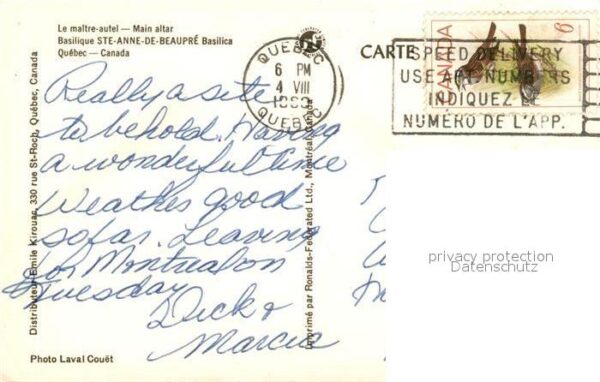 Le maître-autel — Main altar
Basilique STE-ANNE-DE-BEAUPRÉ Basilica
Québec — Canada
Really a site
to behold. Having
a wonderful time
Weather good
so far. Leaving
for Montreal on
Tuesday
Dick &
Marcia
Photo Laval Couët
Distributeur: Emile Kirouac, 330 rue St-Roch, Québec, Canada
Imprimé par Ronalds-Federated Ltd., Montréal, Canada
QUÉBEC
6 PM
4 VIII
1969
QUÉBEC
CARTE
CANADA
6
SPEED DELIVERY
USE APT NUMBERS
INDIQUEZ LE
NUMÉRO DE L'APP.
privacy protection
Datenschutz